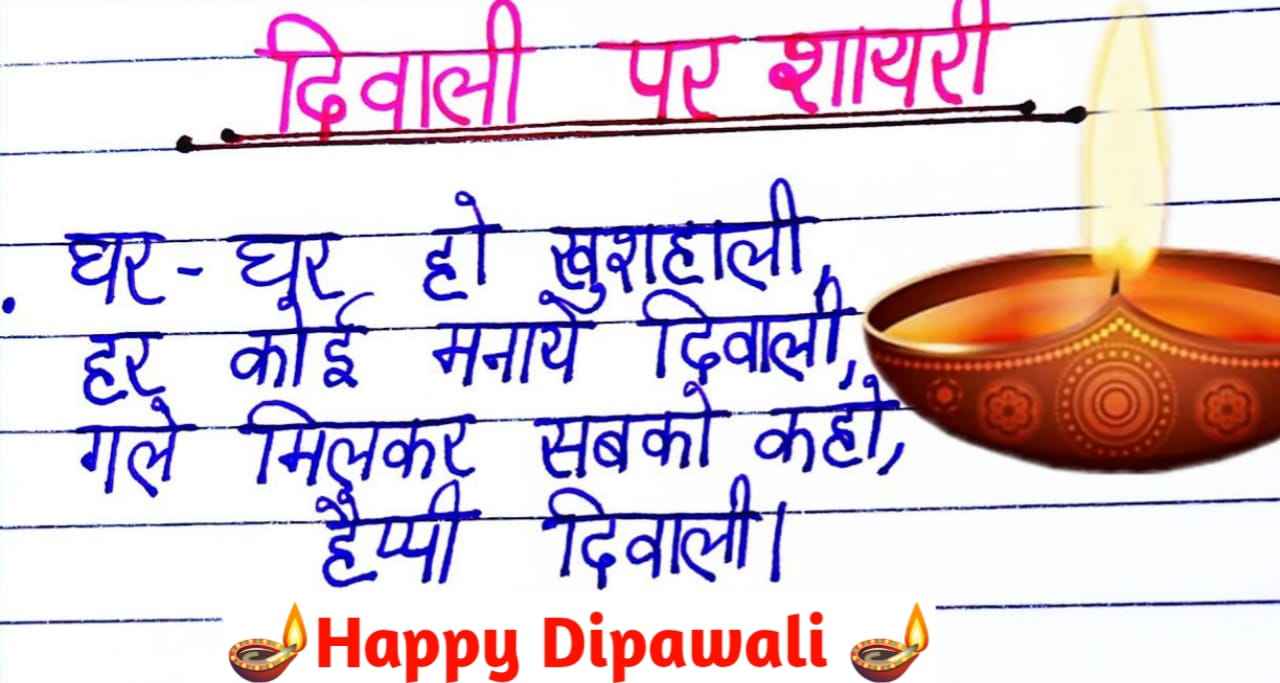 दिवाली पर शायरी
घर-घर हो खुशहाली,
हर कोई मनाये दिवाली,
गले मिलकर सबको कहो,
हैप्पी दिवाली।
Happy Dipawali